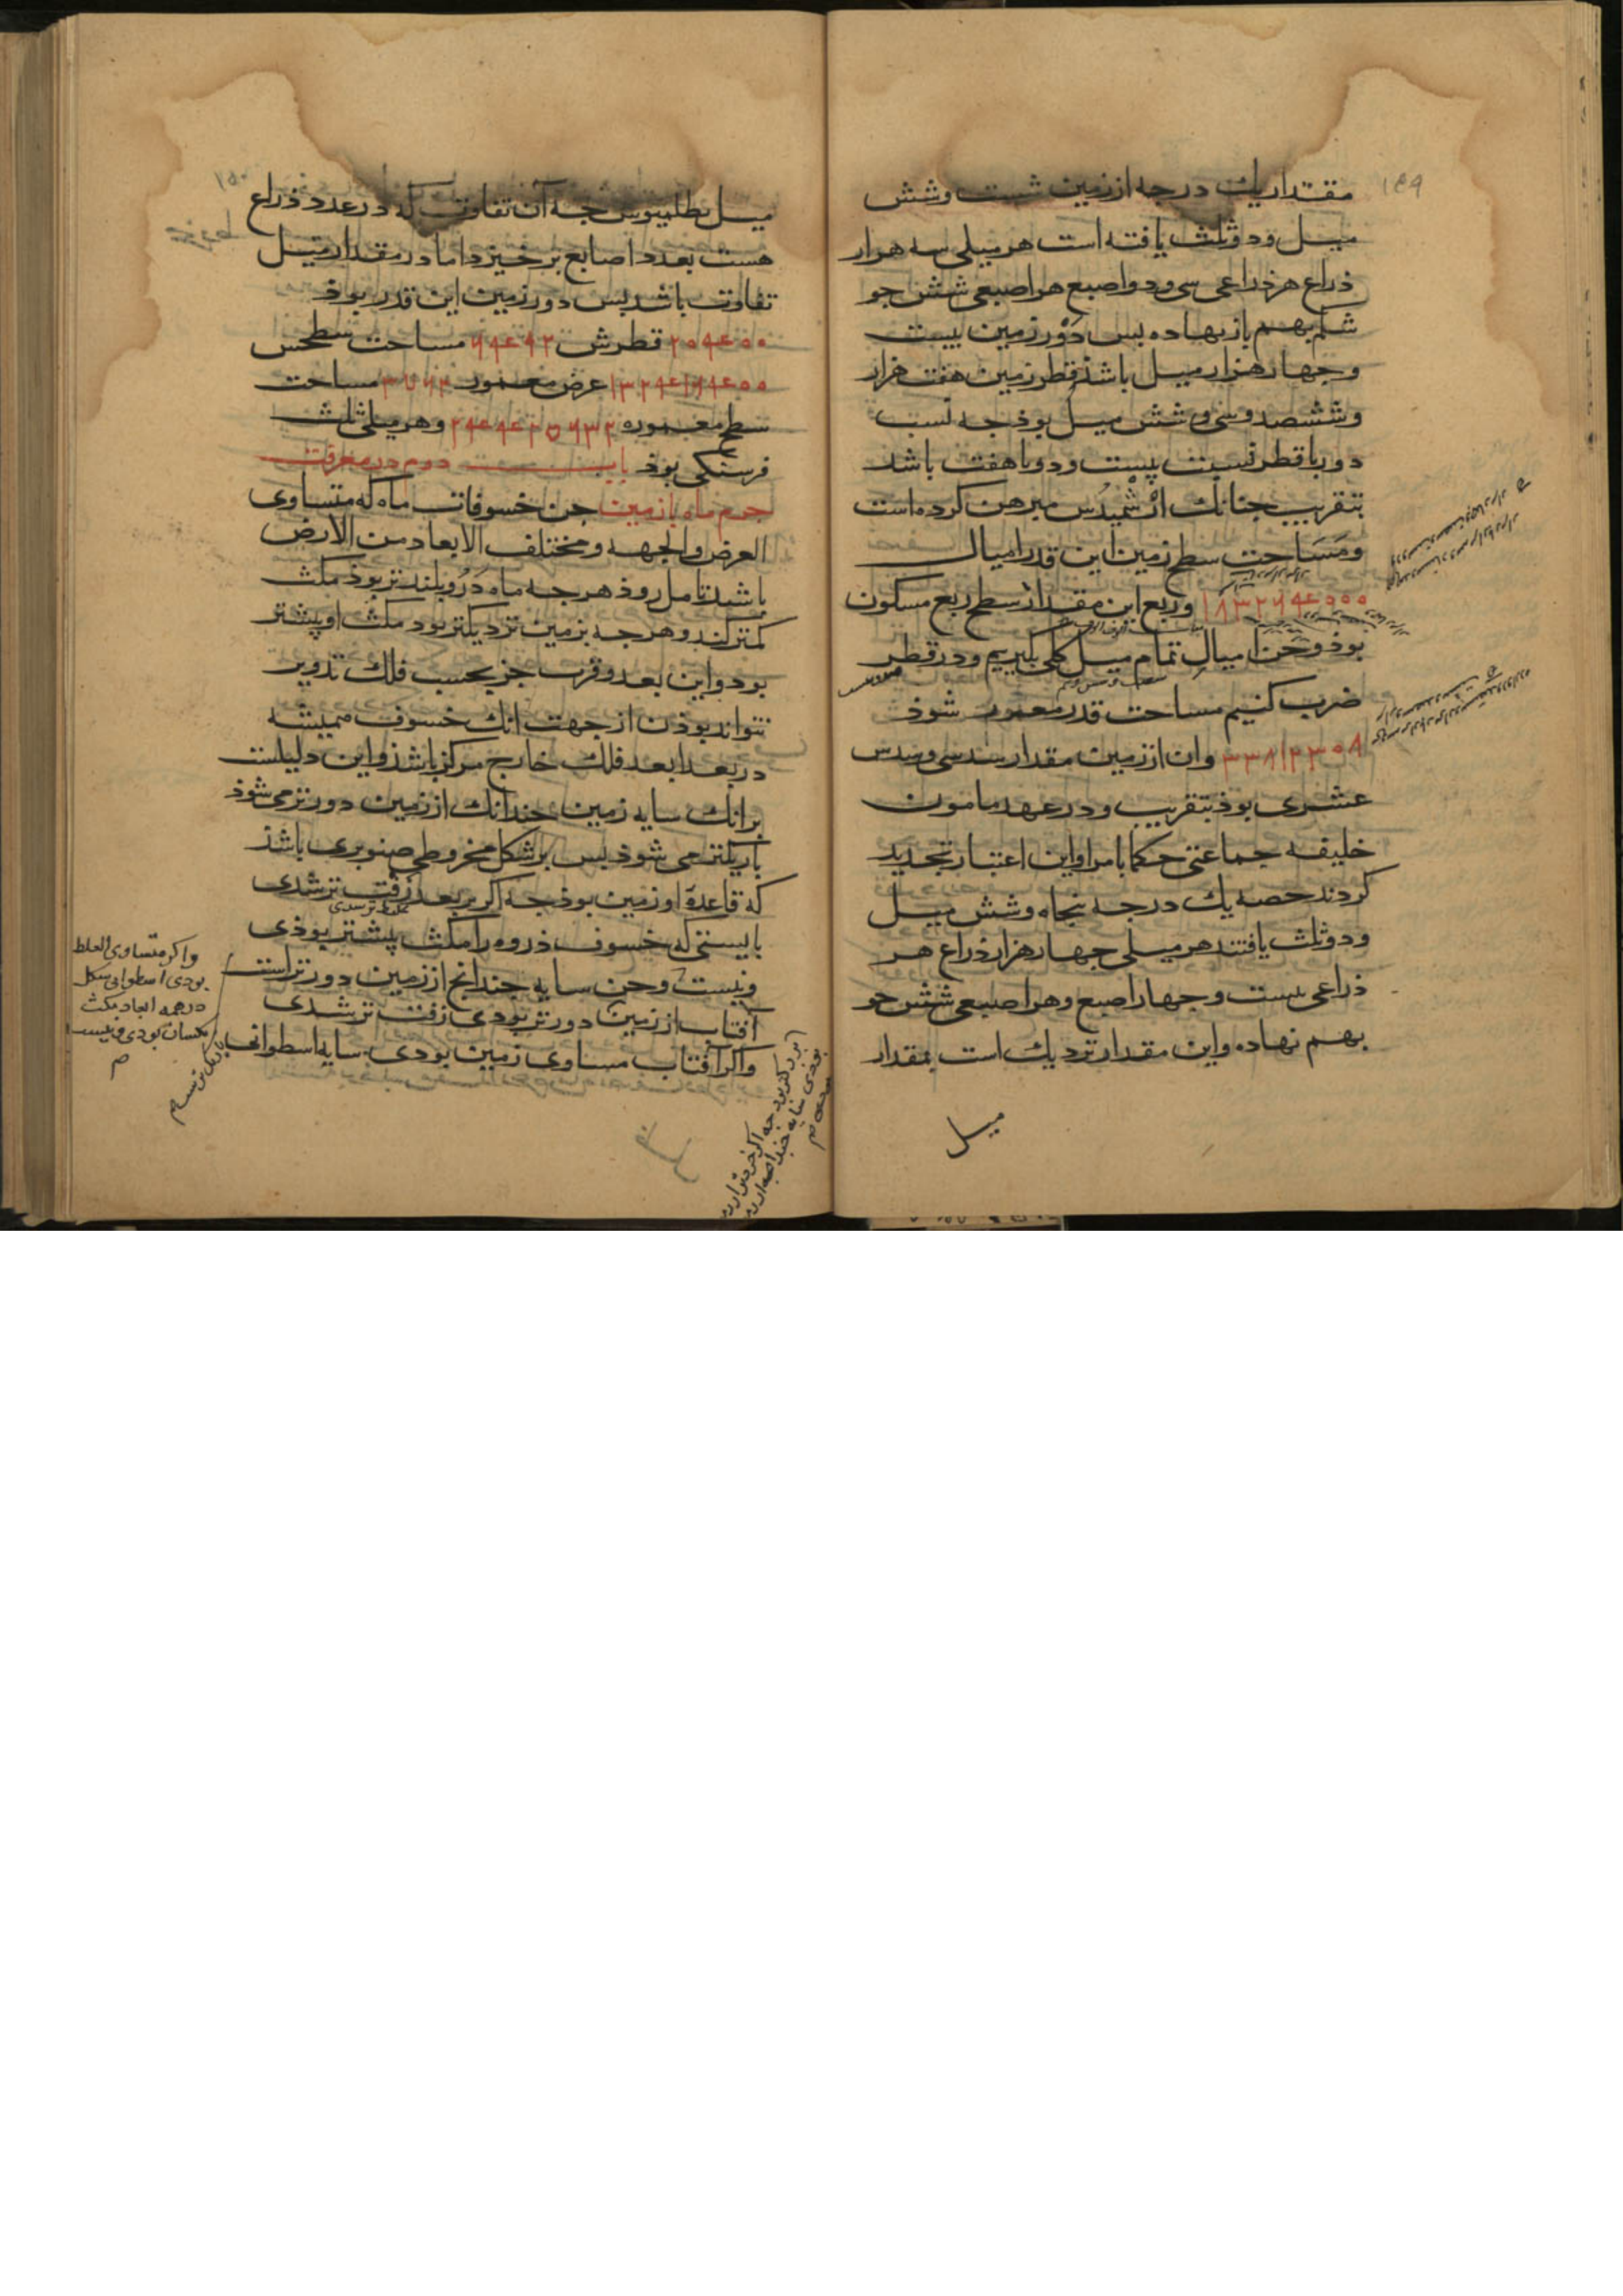 ١٤٩
مقدار يك درجه از زمين شست وشش
ميل ودو ثلث يافته است هر ميلى سه هزار
ذراع هر ذراعى سى ودو اصبع هر اصبعى شش جو
شكم بهم باز نهاده بس دَوْر زمين بيست
وچهار هزار ميل باشذ قطر زمين هفت هزار
وششصد وسى وشش ميل بوذ جه نسبت
دور با قطر نسبت بيست ودو با هفت باشد
بتقريب جنانك ارشميدُس مبرهن كرده است
ومَسَاحت سطح زمين اين قدر اميال
١٨٣٢٦٤٠٠٠ وربع اين مقدار از سطح ربع مسكون
بوذ وجن اميال تمام ميل كلى بگيريم ودر قطر
ضرب كنيم مساحت قدر معمور شوذ
٣٣٨١٢٢٠٨ وان از زمين مقدار سدسى وسدس
عشرى بوذ بتقريب ودر عهد مامون
خليفه جماعتى حكما بامر او اين اعتبار تجديد
كردند حصه يك درجه پنجاه وشش ميل
ودو ثلث يافتند هر ميلى جهار هزار ذراع هر
ذراعى بيست وجهار اصبع وهر اصبعى شش جو
بهم نهاده واين مقدار نزديك است بمقدار
ميل
١٥٠
ميل بطلميوس جه آن تفاوت كه در عدد ذراع
هست بعدد اصابع بر خيزد اما در مقدار ميل
تفاوت باشد بس دور زمين اين قدر بوذ
٢٠٤٠٠ قطرش ٦٤٩٢ مساحت سطحش
١٣٢٤١٦٤٠٠ عرض معمور ٣٧٦٢ مساحت
سطح معموره ٢٤٤٤٢٥٦٣٢ وهر ميلى ثلث
فرسنگى بوذ بابـ دوم در معرفت
جرم ماه با زمين جن خسوفات ماه كه متساوى
العرض والجهه ومختلف الابعاد من الارض
باشد تامل روذ هر جه ماه دَرُو بلندتر بوذ مكث
كمتر كند وهر جه بزمين نزديكتر بود مكث او بيشتر
بود واين بعد وقرب جز بحسب فلك تدوير
نتواند بوذن از جهت انك خسوف هميشه
در بعد ابعد فلك خارج مركز باشذ واين دليلست
برانك سايه زمين جندانك از زمين دورتر مى شود
باريكتر مى شوذ بس بر شكل مخروطى صنوبرى باشذ
كه قاعدة او زمين بوذ جه اكر بر بعد زفت تر شدى
بايستى كه خسوف ذروه را مكث بيشتر بوذى
ونيست وجن سايه جندانچ از زمين دورتر است
آفتاب از زمين دورتر بودى زفت تر شدى
واكر آفتاب مساوى زمين بودى سايه اسطوانى
واكر متساوى الغلظ
بودى اسطوانى شكل
در همه ابعاد مكث
يكسان بودى ونيست